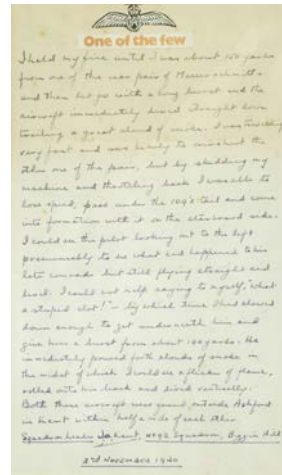 One of the few
I held my fire until I was about 150 yards
from one of the rear pair of Messerschmitts
and then let go with a long burst and the
aircraft immediately dived straight down
trailing a great cloud of smoke. I was travelling
very fast and was likely to overshoot the
other one of the pair, but by skidding my
machine and throttling back I was able to
lose speed, pass under the 109's tail and come
into formation with it on the starboard side.
I could see the pilot looking out to the left
presumably to see what had happened to his
late comrade but still flying straight and
level. I could not help saying to myself, "what
a stupid clot!" – by which time I had slowed
down enough to get underneath him and
give him a burst from about 100 yards. He
immediately poured forth clouds of smoke in
the midst of which I could see a flicker of flame,
rolled onto his back and dived vertically.
Both these aircraft were found outside Ashford
in Kent within half a mile of each other
Squadron Leader Kent, 92 Squadron, Biggin Hill
2nd November 1940